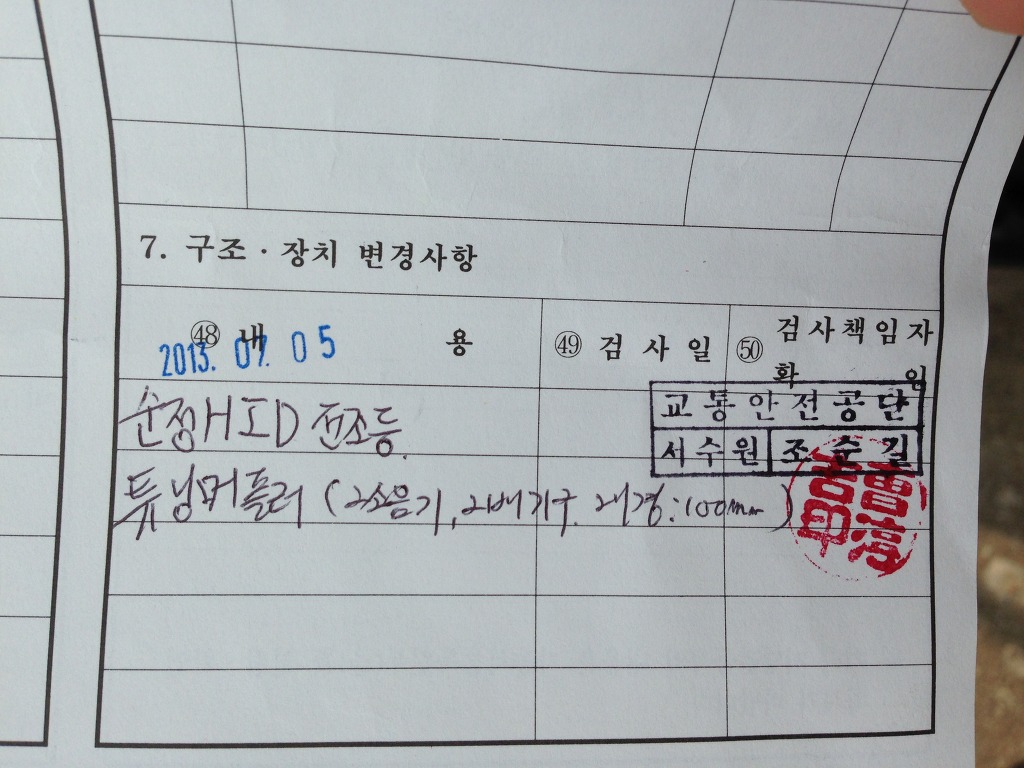 7. 구조 · 장치 변경사항
㊽ 내 용
㊾ 검 사 일
㊿ 검사책임자
확 인
2013. 07. 05
순정HID 전조등.
튜닝머플러 (2소음기, 2배기구. 내경:100mm )
교통안전공단
서수원 조순길